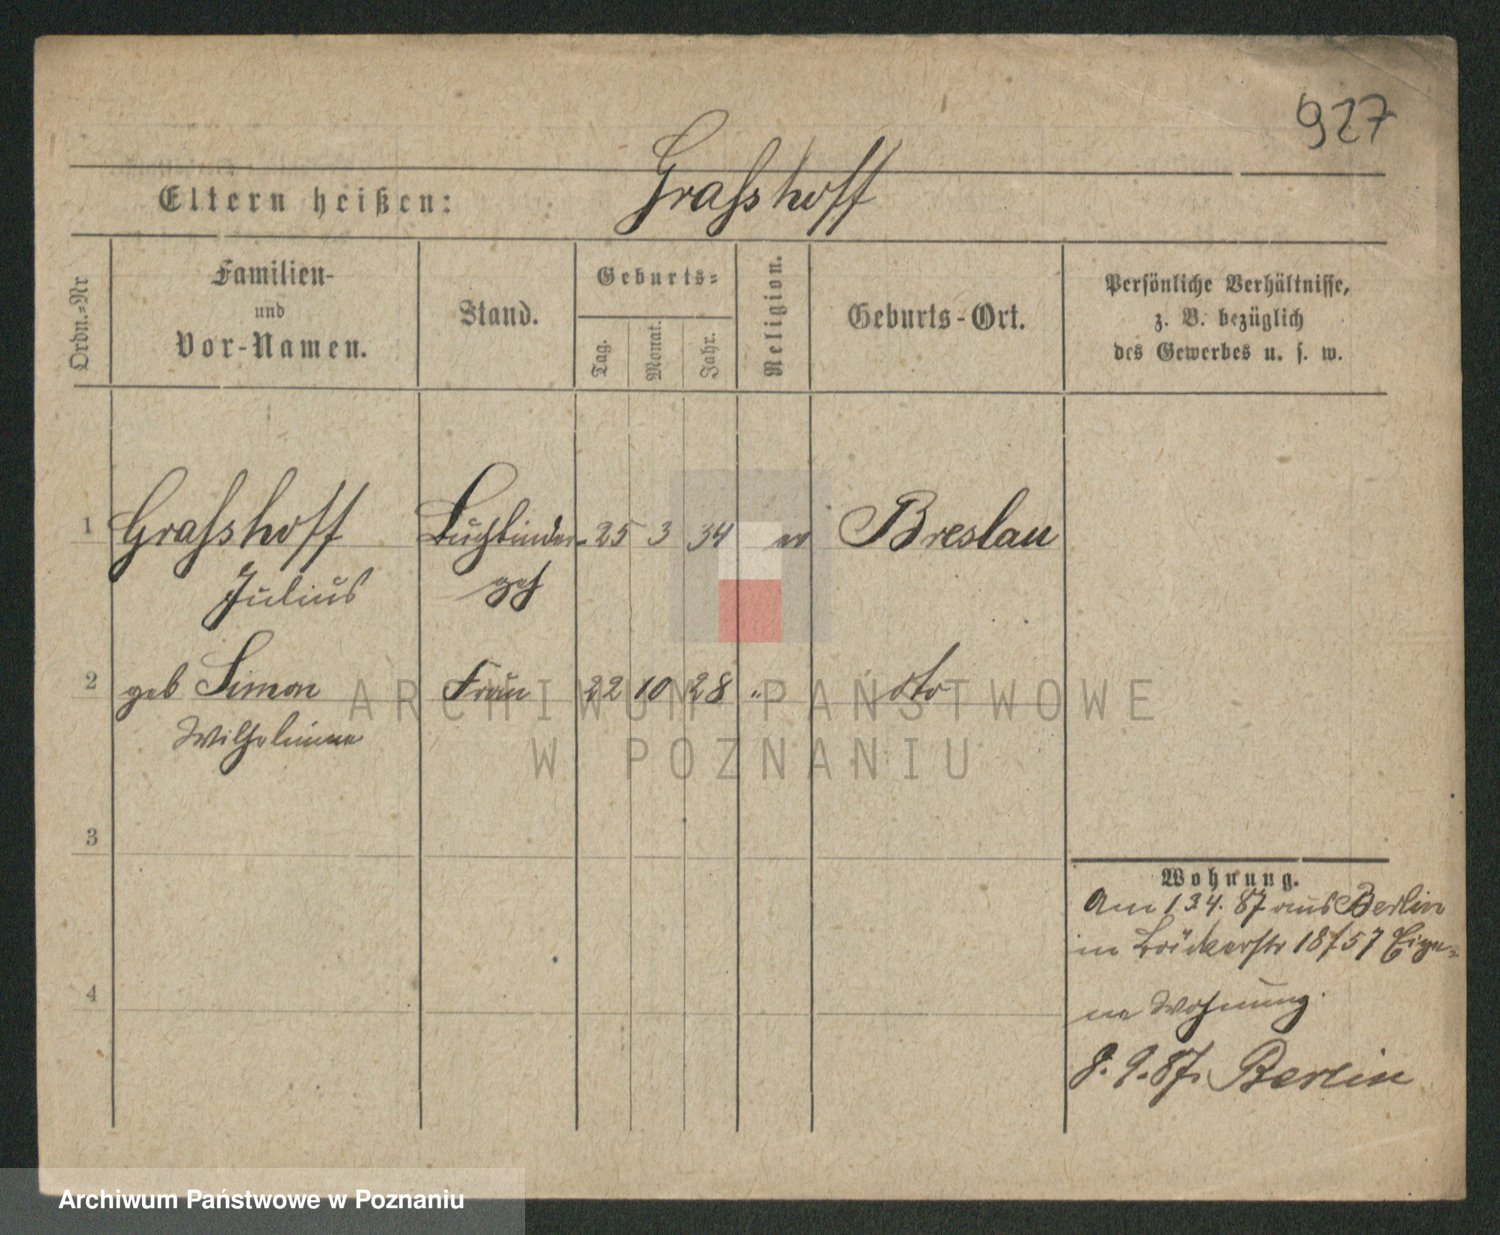 927
Eltern heißen: Graßhoff
Ordn.-Nr
Familien-
und
Vor-Namen.
Stand.
Geburts-
Tag.
Monat.
Jahr.
Religion.
Geburts-Ort.
Persönliche Verhältnisse,
z. B. bezüglich
des Gewerbes u. s. w.
1 Graßhoff Buchbinder- 25 3 34 ev Breslau
Julius geh
2 geb Simon Frau 22 10 28 " dto
Wilhelmine
ARCHIWUM PAŃSTWOWE
W POZNANIU
3
4
Wohnung.
Am 13.4.87 aus Berlin
in Bäckerstr 18/57 Eige-
ne Wohnung.
8.9.87. Berlin
Archiwum Państwowe w Poznaniu